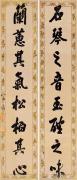 石琴之音玉醴之味
蘭蕙其氣松柏其心